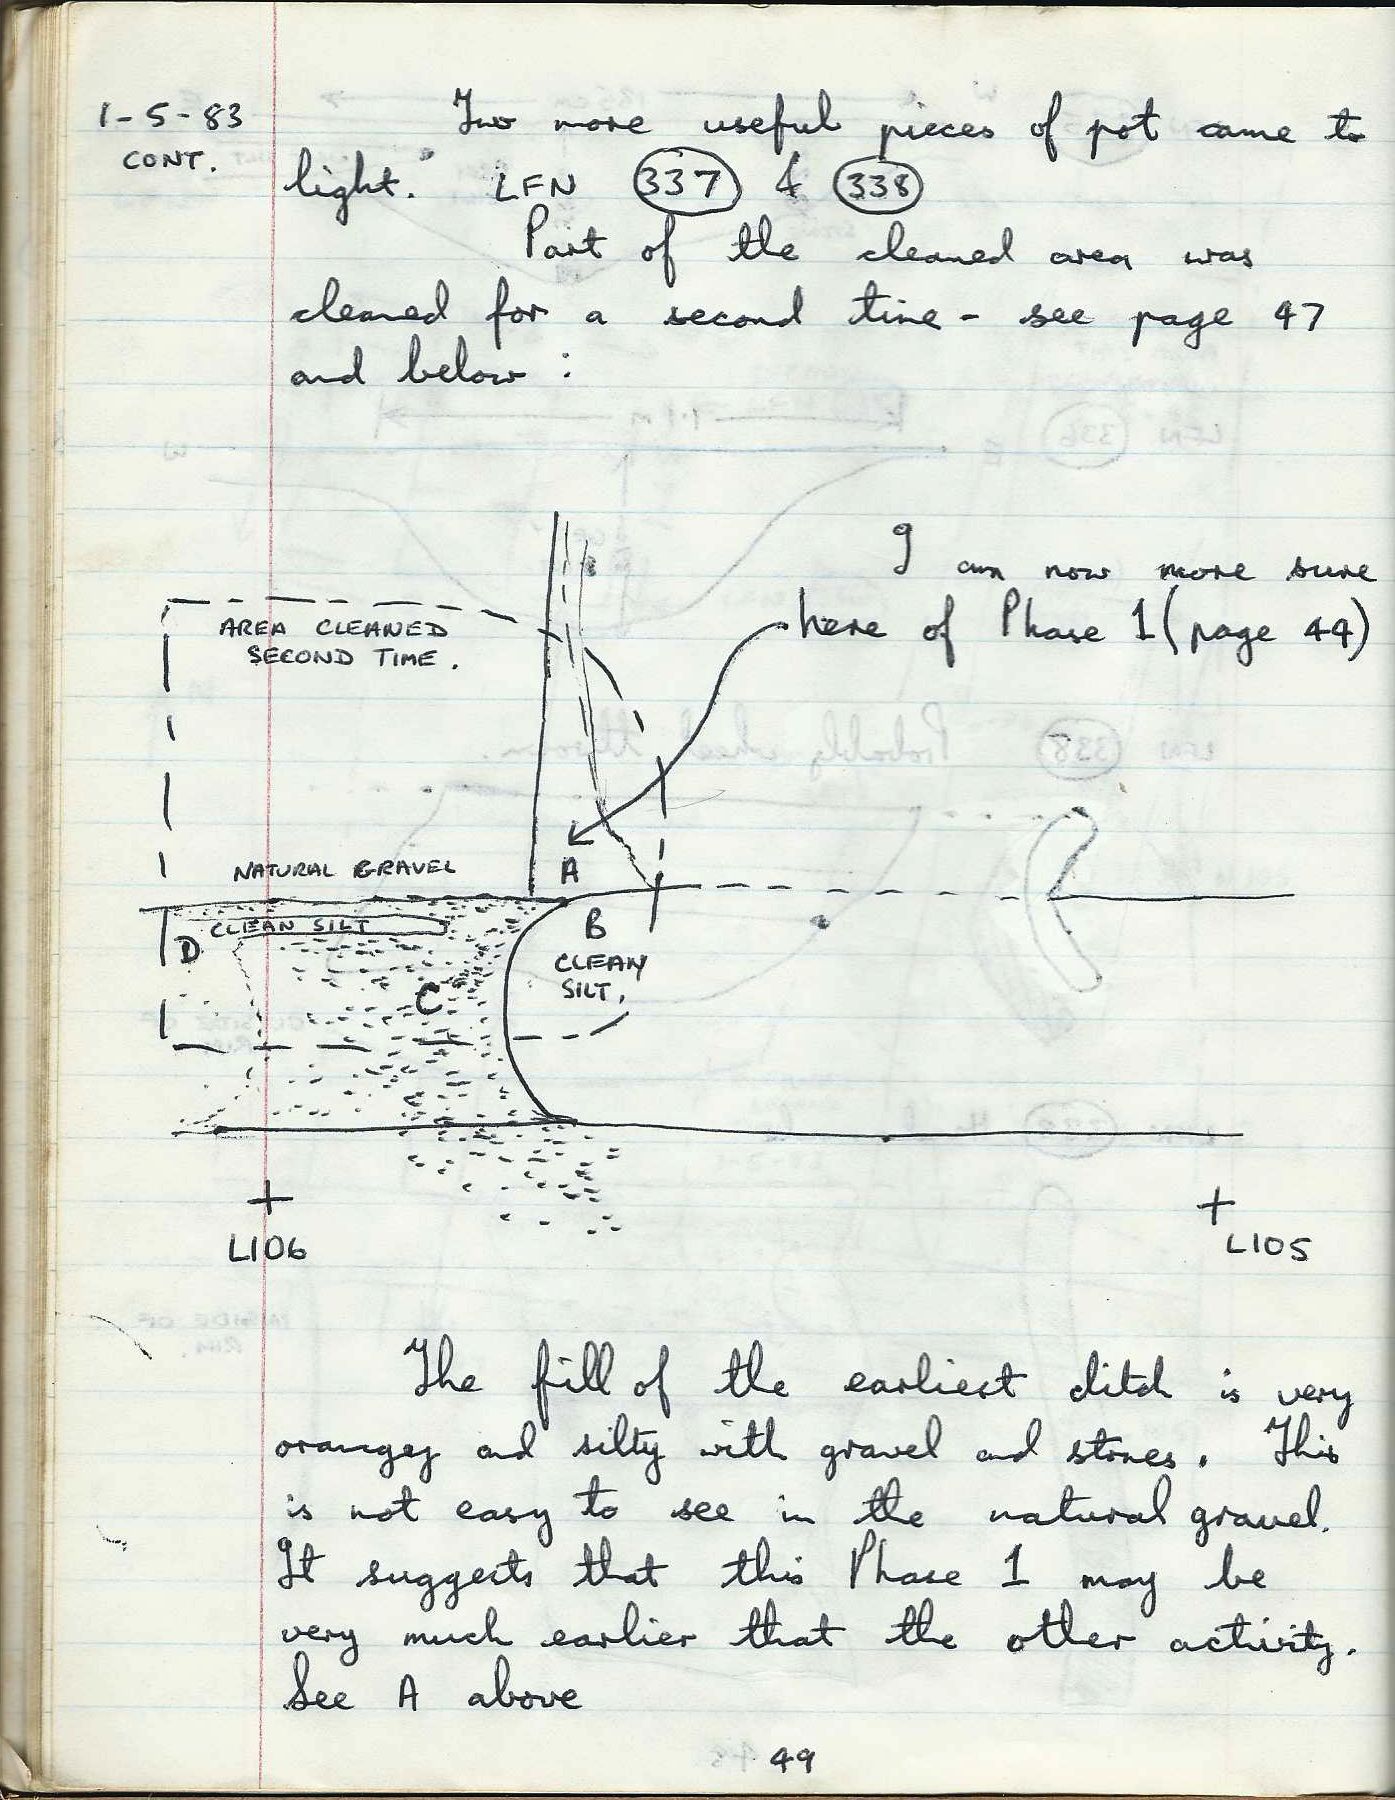 1-5-83
CONT.
Two more useful pieces of pot came to
light. LFN 337 & 338
Part of the cleaned area was
cleaned for a second time - see page 47
and below :
I am now more sure
here of Phase 1 (page 44)
AREA CLEANED
SECOND TIME.
NATURAL GRAVEL
A
CLEAN SILT
B
D
CLEAN
SILT.
C
L106
L105
The fill of the earliest ditch is very
orangey and silty with gravel and stones. This
is not easy to see in the natural gravel.
It suggests that this Phase 1 may be
very much earlier that the other activity.
See A above
49